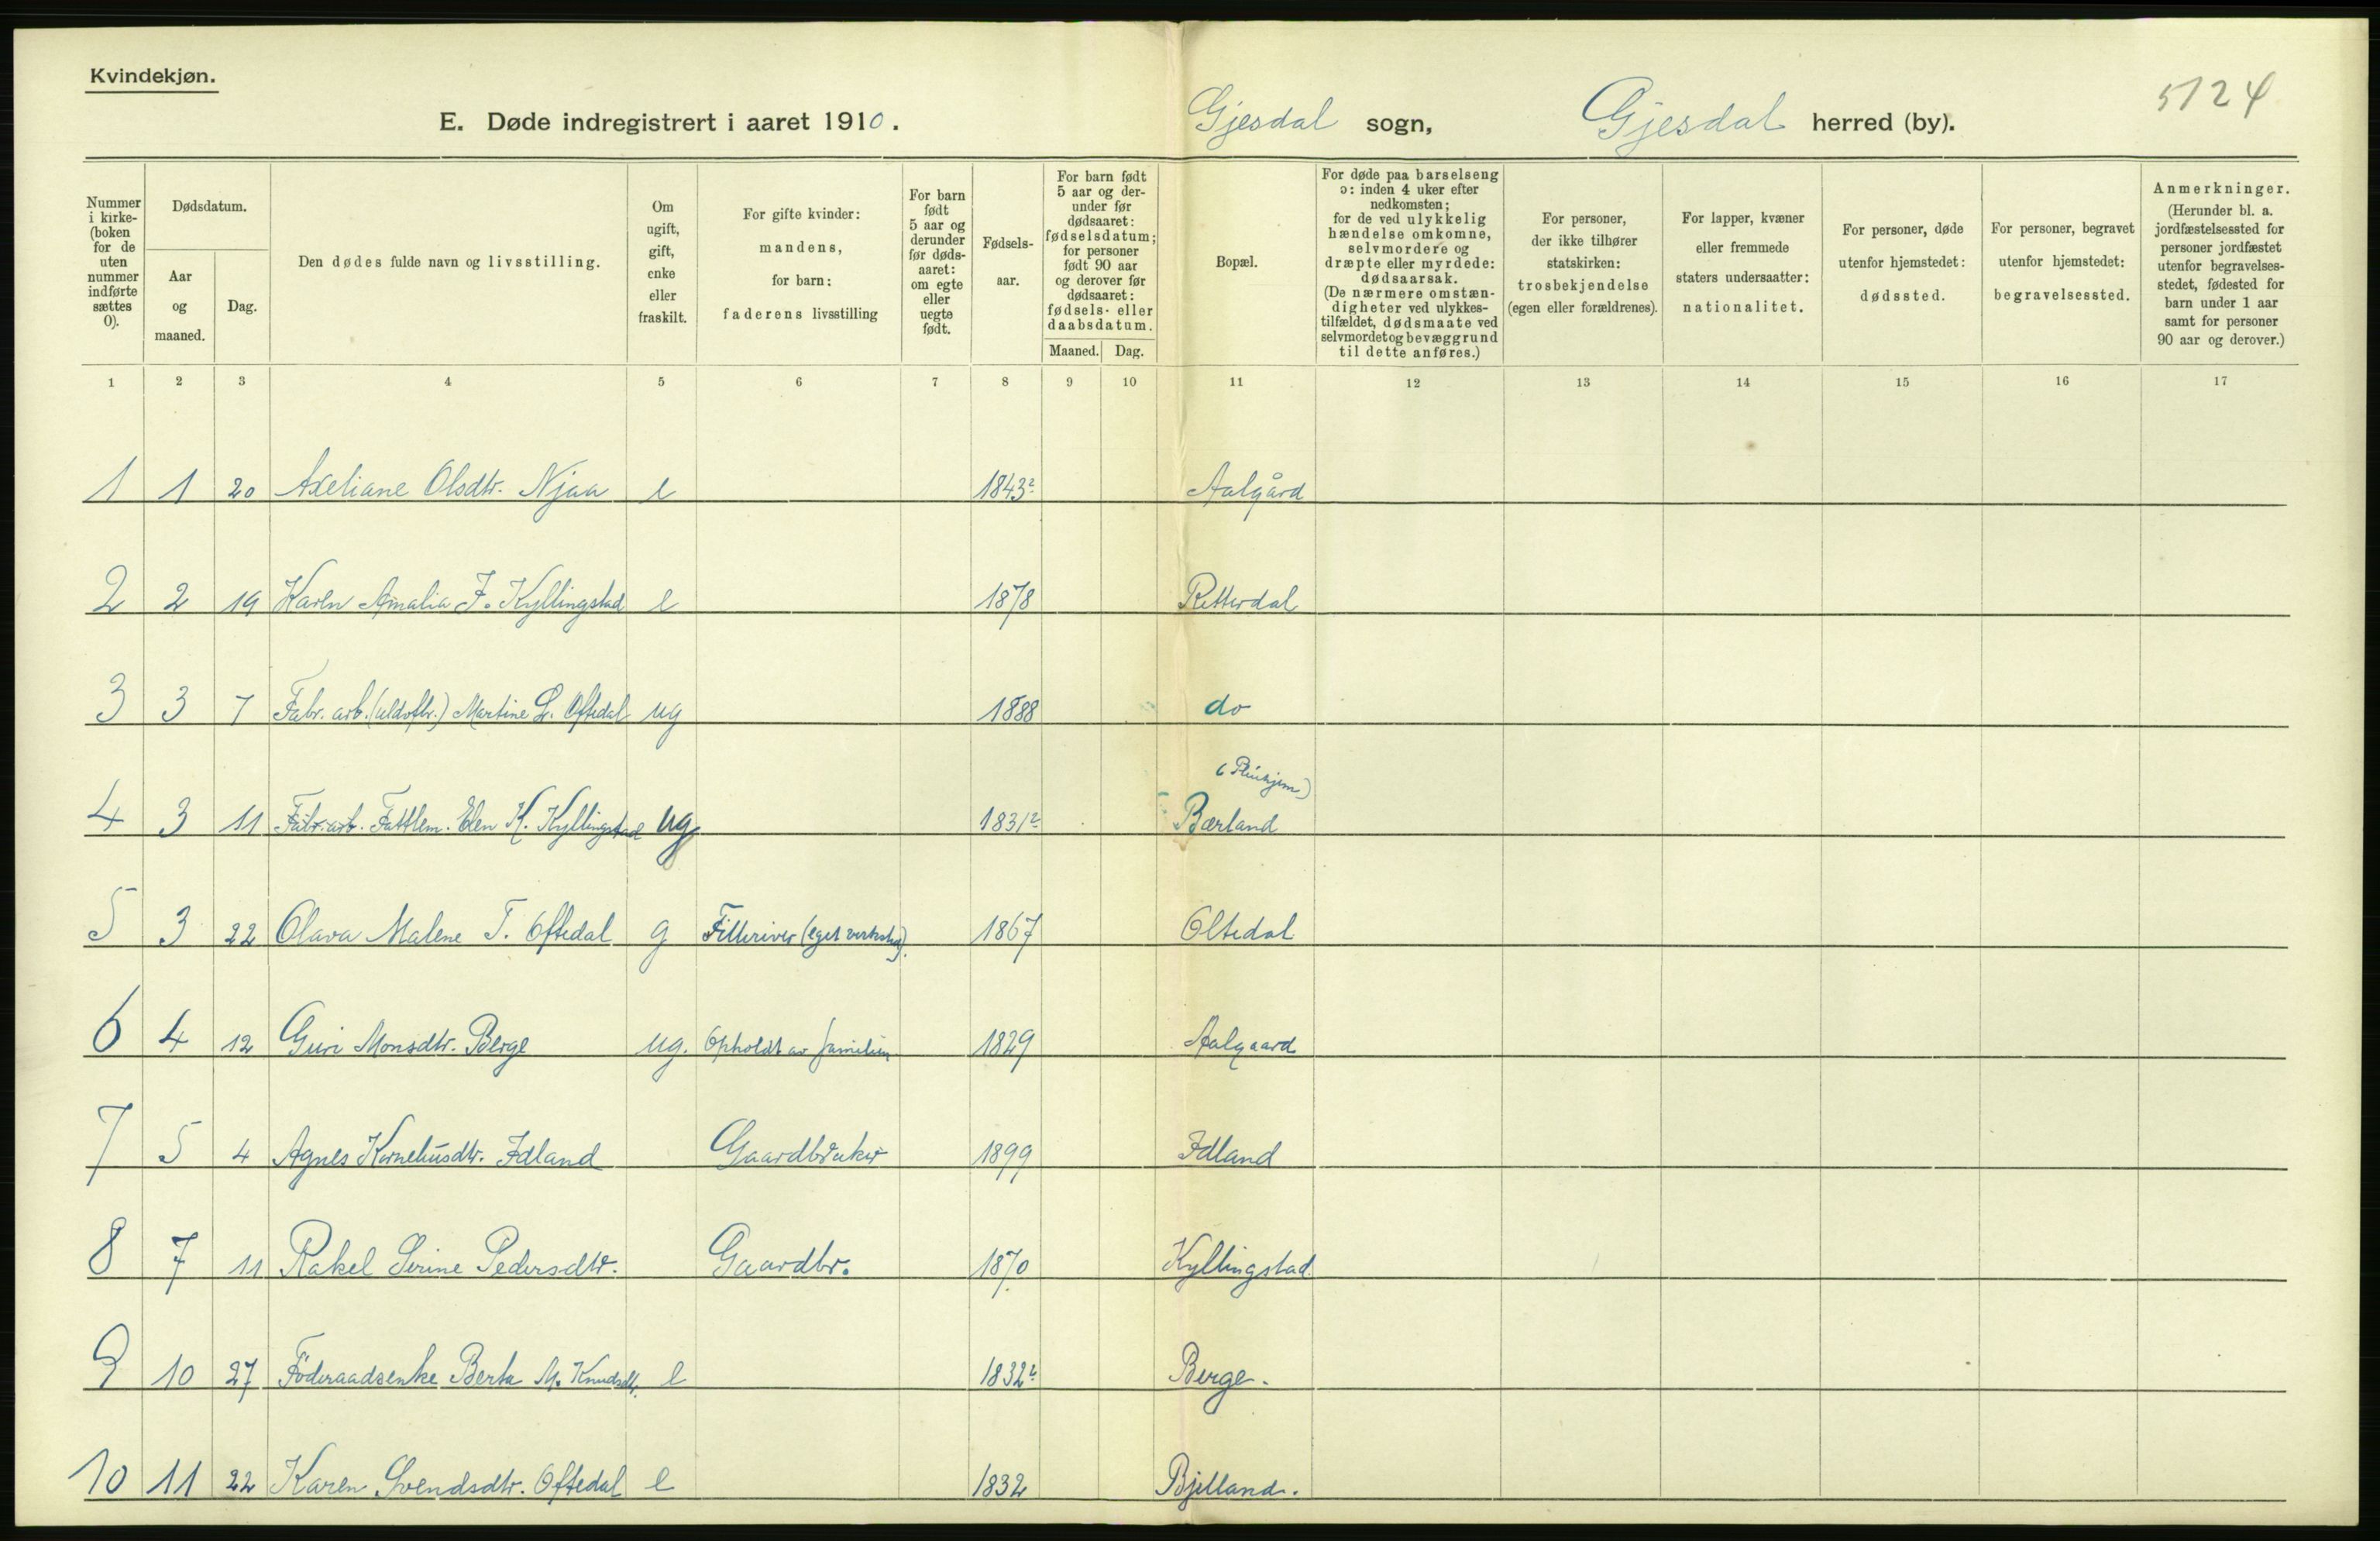 Kvindekjøn.
5124
E. Døde indregistrert i aaret 1910. Gjesdal sogn, Gjesdal herred (by).
Nummer i kirke- (boken for de uten nummer indførte sættes 0).
Dødsdatum.
Aar og maaned.
Dag.
Den dødes fulde navn og livsstilling.
Om ugift, gift, enke eller fraskilt.
For gifte kvinder: mandens, for barn: faderens livsstilling
For barn født 5 aar og derunder før døds- aaret: om egte eller uegte født.
Fødsels- aar.
For barn født 5 aar og der- under før dødsaaret: fødselsdatum; for personer født 90 aar og derover før dødsaaret: fødsels- eller daabsdatum.
Maaned. Dag.
Bopæl.
For døde paa barselseng ɔ: inden 4 uker efter nedkomsten; for de ved ulykkelig hændelse omkomne, selvmordere og dræpte eller myrdede: dødsaarsak. (De nærmere omstæn- digheter ved ulykkes- tilfældet, dødsmaate ved selvmordet og bevæggrund til dette anføres.)
For personer, der ikke tilhører statskirken: trosbekjendelse (egen eller forældrenes).
For lapper, kvæner eller fremmede staters undersaatter: nationalitet.
For personer, døde utenfor hjemstedet: dødssted.
For personer, begravet utenfor hjemstedet: begravelsessted.
Anmerkninger. (Herunder bl. a. jordfæstelsessted for personer jordfæstet utenfor begravelses- stedet, fødested for barn under 1 aar samt for personer 90 aar og derover.)
1 2 3 4 5 6 7 8 9 10 11 12 13 14 15 16 17
1 1 20 Axeliane Olsdtr. Njaa e 1843 2 Aalgård
2 2 19 Karen Amalia F. Kyllingstad e 1878 Retterdal
3 3 7 Fabr. arb. (uldvfbr.) Martine L. Oftedal ug 1888 do
(Pleiehjem)
4 3 11 Fabr. arb. Fattlem. Elen K. Kyllingstad ug. 1831 2 Bærland
5 3 22 Olava Malene T. Oftedal g Filleriver (eget verksted). 1867 Oltedal
6 4 12 Guri Monsdtr. Berge ug. Opholdt av familien 1829 Aalgaard
7 5 4 Agnes Korneliusdtr. Idland Gaardbruker 1899 Idland
8 7 11 Rakel Serine Pedersdtr. Gaardbr. 1870 Kyllingstad.
9 10 27 Föderaadsenke Berta M. Knudsdtr. e 1832 2 Berge.
10 11 22 Karen Svendsdtr. Oftedal e 1832 Bjelland.